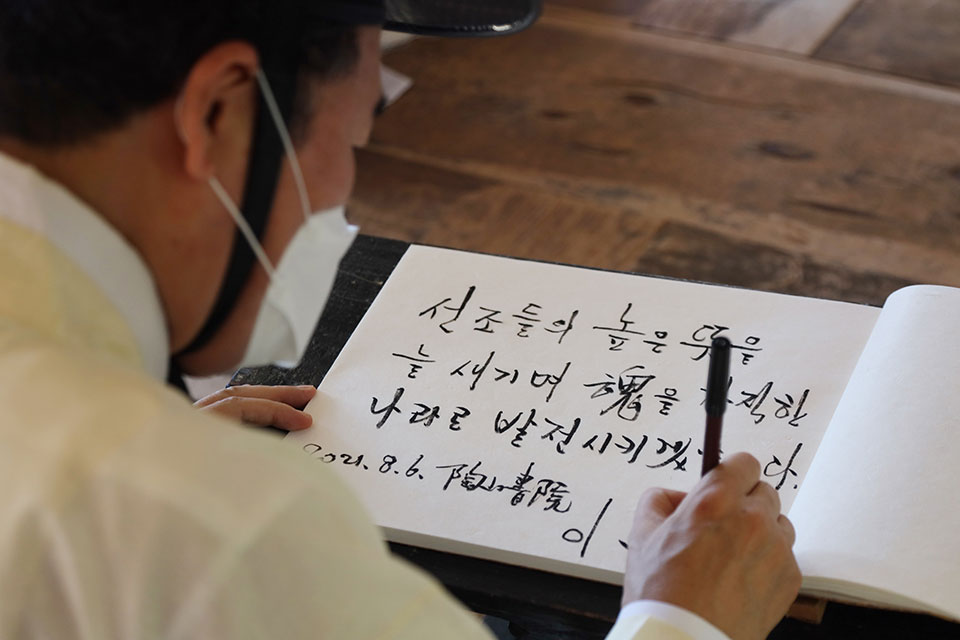 선조들의 높은 뜻을
늘 새기며 魂을 간직한
나라로 발전시키겠 다.
2021. 8. 6. 陶山書院
이